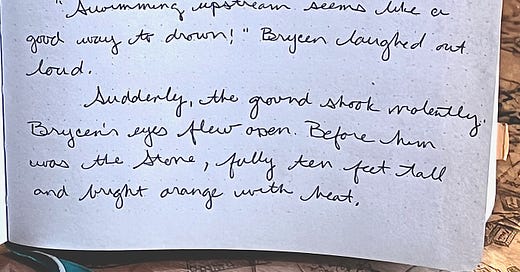 "Swimming upstream seems like a
good way to drown!" Brycen laughed out
loud.
Suddenly, the ground shook violently.
Brycen's eyes flew open. Before him
was the Stone, fully ten feet tall
and bright orange with heat.